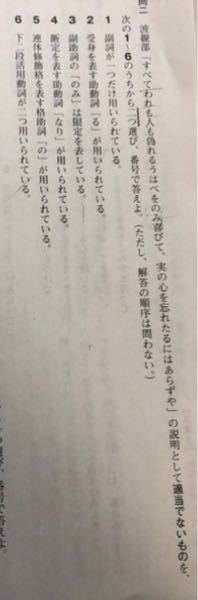 問二 波線部「すべてわれも人も偽れるうはべをのみ喜びて、実の心を忘れたるにはあらずや」の説明として適当でないものを、
次の1~6のうちから二つ選び、番号で答えよ。(ただし、解答の順序は問わない。)
1 副詞が一つだけ用いられている。
2 受身を表す助動詞「る」が用いられている。
3 副助詞の「のみ」は限定を表している。
4 断定を表す助動詞「なり」が用いられている。
5 連体修飾格を表す格助詞「の」が用いられている。
6 下二段活用動詞が二つ用いられている。